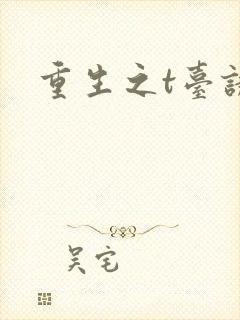 重生之t臺
吴宅